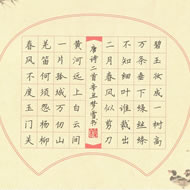 碧玉妆成一树高
万条垂下绿丝绦
不知细叶谁裁出
二月春风似剪刀
唐诗二首辛丑梦雪书
黄河远上白云间
一片孤城万仞山
羌笛何须怨杨柳
春风不度玉门关